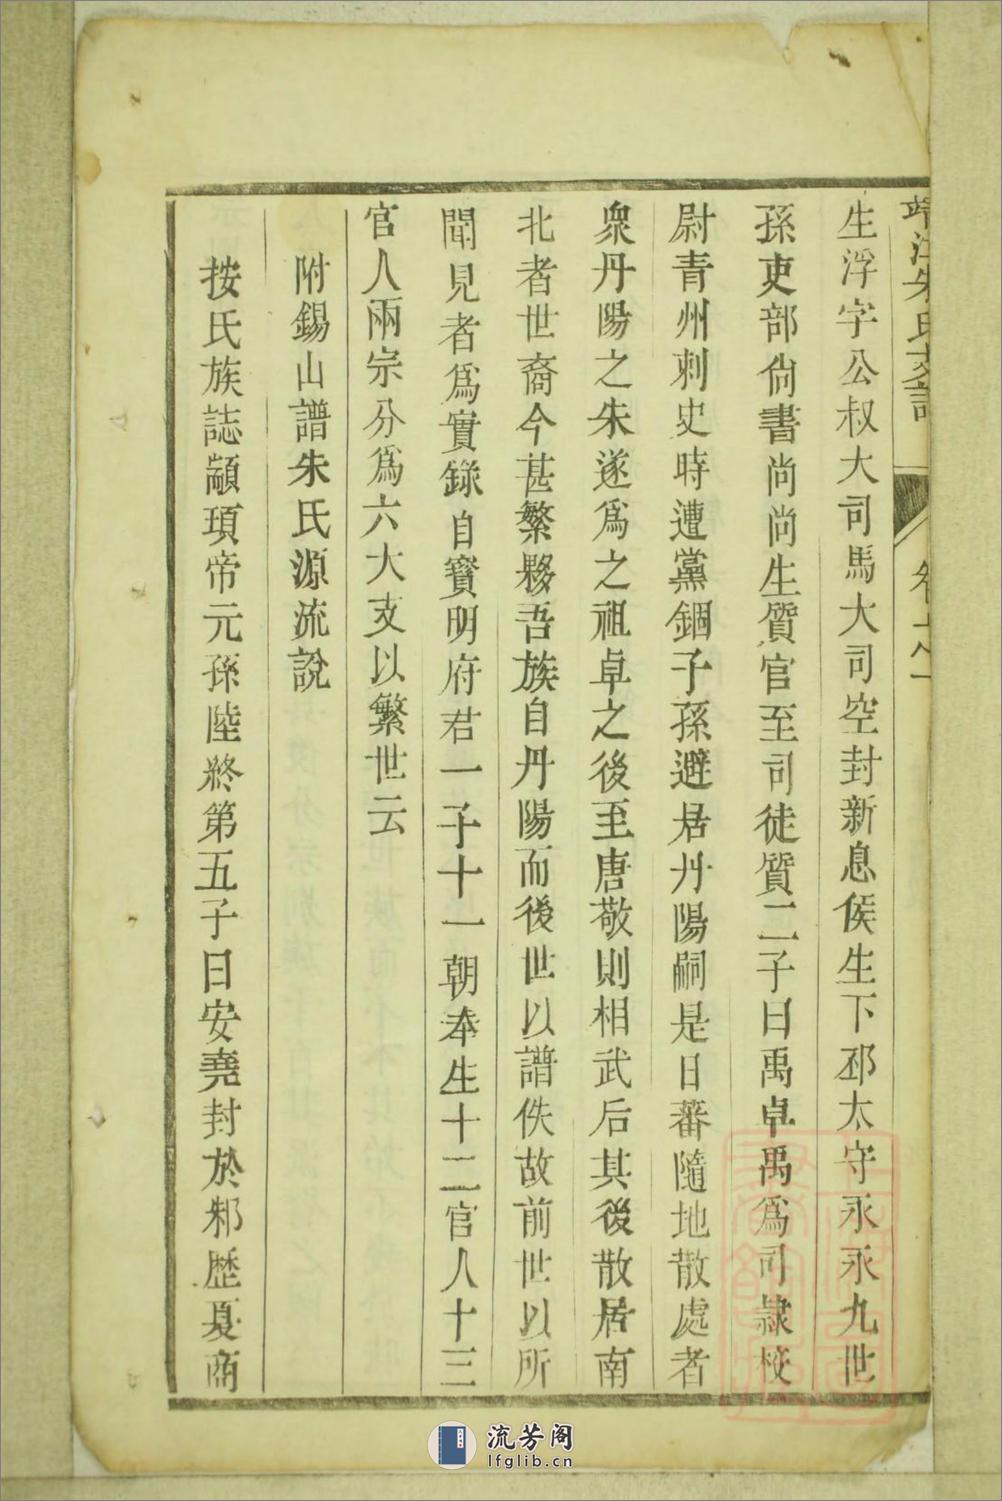 朱氏支譜
生浮字公叔大司馬大司空封新息侯生下邳太守永永九世
孫吏部尚書尚尚生質官至司徒質二子曰禹卓禹爲司隷校
尉青州刺史時遭黨錮子孫避居丹陽嗣是日蕃隨地散處者
衆丹陽之朱遂爲之祖卓之後至唐敬則相武后其後散居南
北者世裔今甚繁夥吾族自丹陽而後世以譜佚故前世以所
聞見者爲實錄自寶明府君一子十一朝奉生十二官人十三
官人兩宗分爲六大支以繁世云
附錫山譜朱氏源流說
按氏族誌顓頊帝元孫陸終第五子曰安堯封於邾歷夏商
流芳阁
lfglib.cn